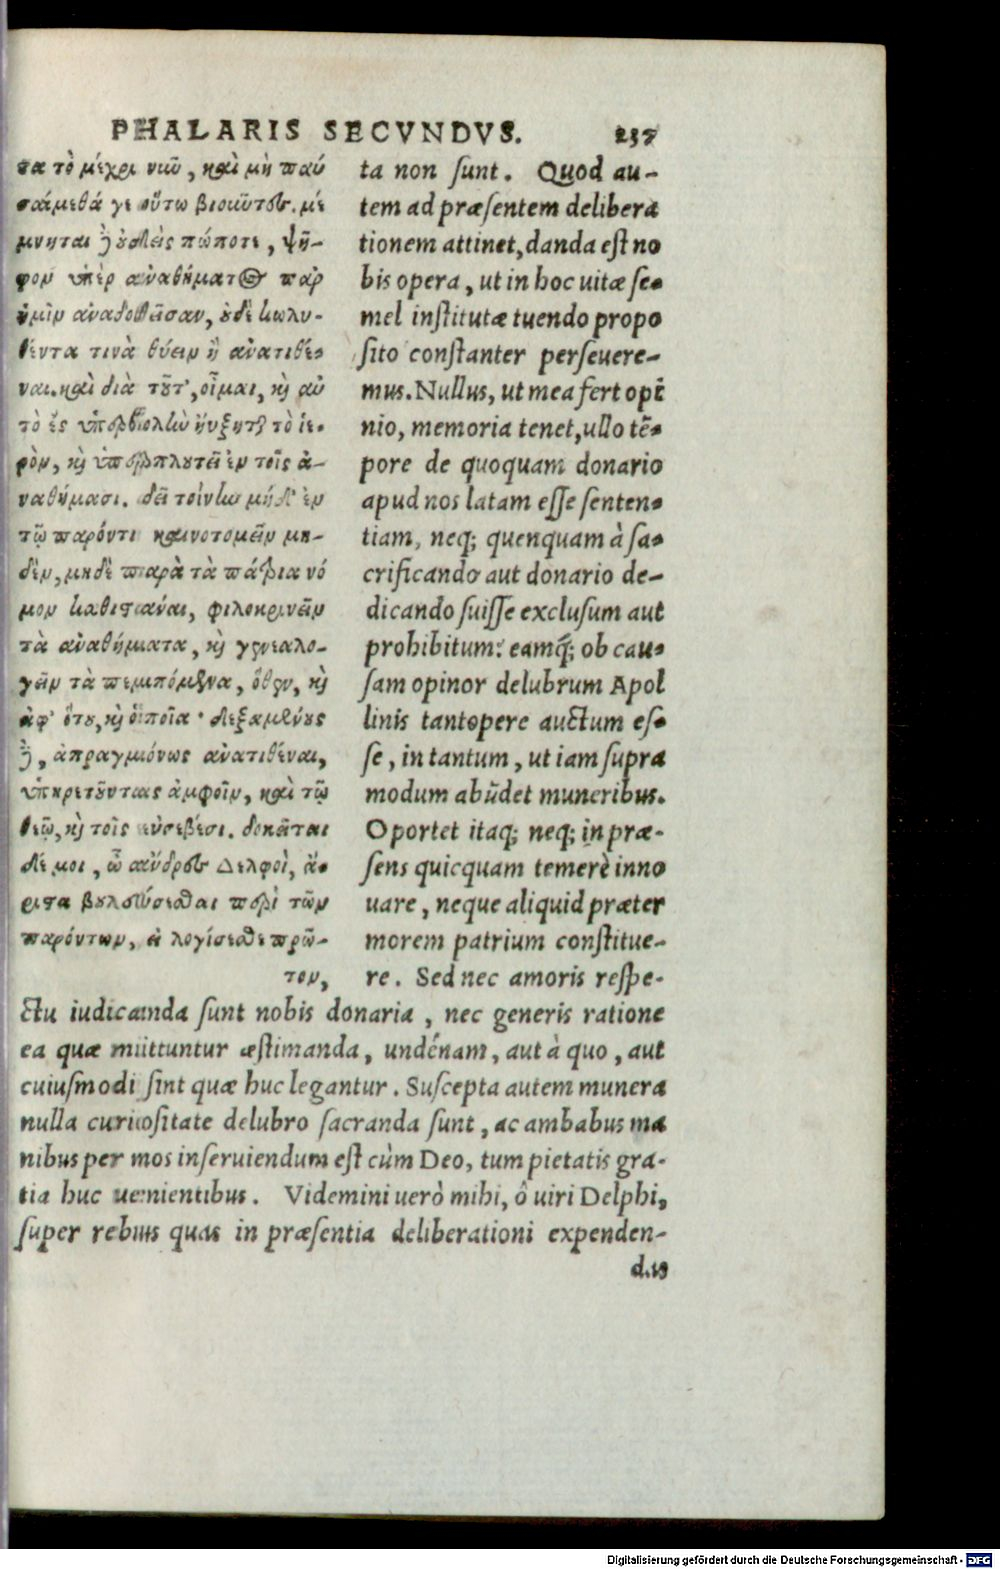 PHALARIS SECVNDVS. 237
τα τὸ μέχρι νιῦ, καὶ μὴ παύ
σαίμεθά γε οὕτω βιοιῶτες. μέ
μνηται ἢ ὀδεὶς πώποτε, ψῆ-
φον ὑπὲρ ἀναθήματος παρ
ὑμῖν ἀναδοθεῖσαν, ὀδὲ κωλυ-
θέντα τινὰ θύειν ἢ ἀνατιθέ-
ναι. καὶ διὰ τοῦτ', οἶμαι, καὶ αὐ
τὸ ἐς ὑπερβολὴν ηὔξηται τὸ ἱε-
ρὸν, καὶ ὑπερπλουτεῖ ἐν τοῖς ἀ-
ναθήμασι. δεῖ τοίνυν μηδ' ἐν
τῷ παρόντι καινοτομεῖν μη-
δὲν, μηδὲ παρὰ τὰ πάτρια νό
μον καθιστάναι, φιλοκρινεῖν
τὰ ἀναθήματα, καὶ γενεαλο-
γεῖν τὰ πεμπόμενα, ὅθεν, καὶ
ἀφ' ὅτου, καὶ ὁποῖα· δεξαμένους
δὲ, ἀπραγμόνως ἀνατιθέναι,
ὑπηρετοῦντας ἀμφοῖν, καὶ τῷ
θεῷ, καὶ τοῖς εὐσεβέσι. δοκεῖται
δέ μοι, ὦ ἄνδρες Δελφοὶ, ἄ-
ριστα βουλεύσεσθαι περὶ τῶν
παρόντων, εἰ λογίσεσθε πρῶ-
τον,
ta non sunt. Quod au-
tem ad præsentem delibera
tionem attinet, danda est no
bis opera, ut in hoc uitæ se-
mel institutæ tuendo propo
sito constanter perseuere-
mus. Nullus, ut mea fert opī
nio, memoria tenet, ullo tē-
pore de quoquam donario
apud nos latam esse senten-
tiam, neq; quenquam à sa-
crificando aut donario de-
dicando fuisse exclusum aut
prohibitum: eamq́; ob cau-
sam opinor delubrum Apol
linis tantopere auctum es-
se, in tantum, ut iam supra
modum abūdet muneribus.
Oportet itaq; neq; in præ-
sens quicquam temerè inno
uare, neque aliquid præter
morem patrium constitue-
re. Sed nec amoris respe-
ctu iudicanda sunt nobis donaria, nec generis ratione
ea quæ mittuntur æstimanda, undénam, aut à quo, aut
cuiusmodi sint quæ huc legantur. Suscepta autem munera
nulla curiositate delubro sacranda sunt, ac ambabus ma
nibus per mos inseruiendum est cùm Deo, tum pietatis gra-
tia huc uenientibus. Videmini uerò mihi, ô uiri Delphi,
super rebus quas in præsentia deliberationi expenden-
d.is
Digitalisierung gefördert durch die Deutsche Forschungsgemeinschaft - DFG